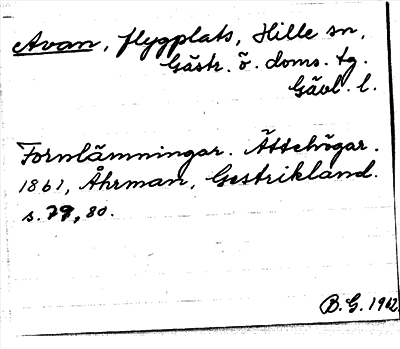 Avan, flygplats, Hille sn,
Gästr. ö. doms. tg.
Gävl. l.
Fornlämningar. Ättehögar.
1861, Åhrman, Gestrikland.
s. 79, 80.
B. G. 1962.